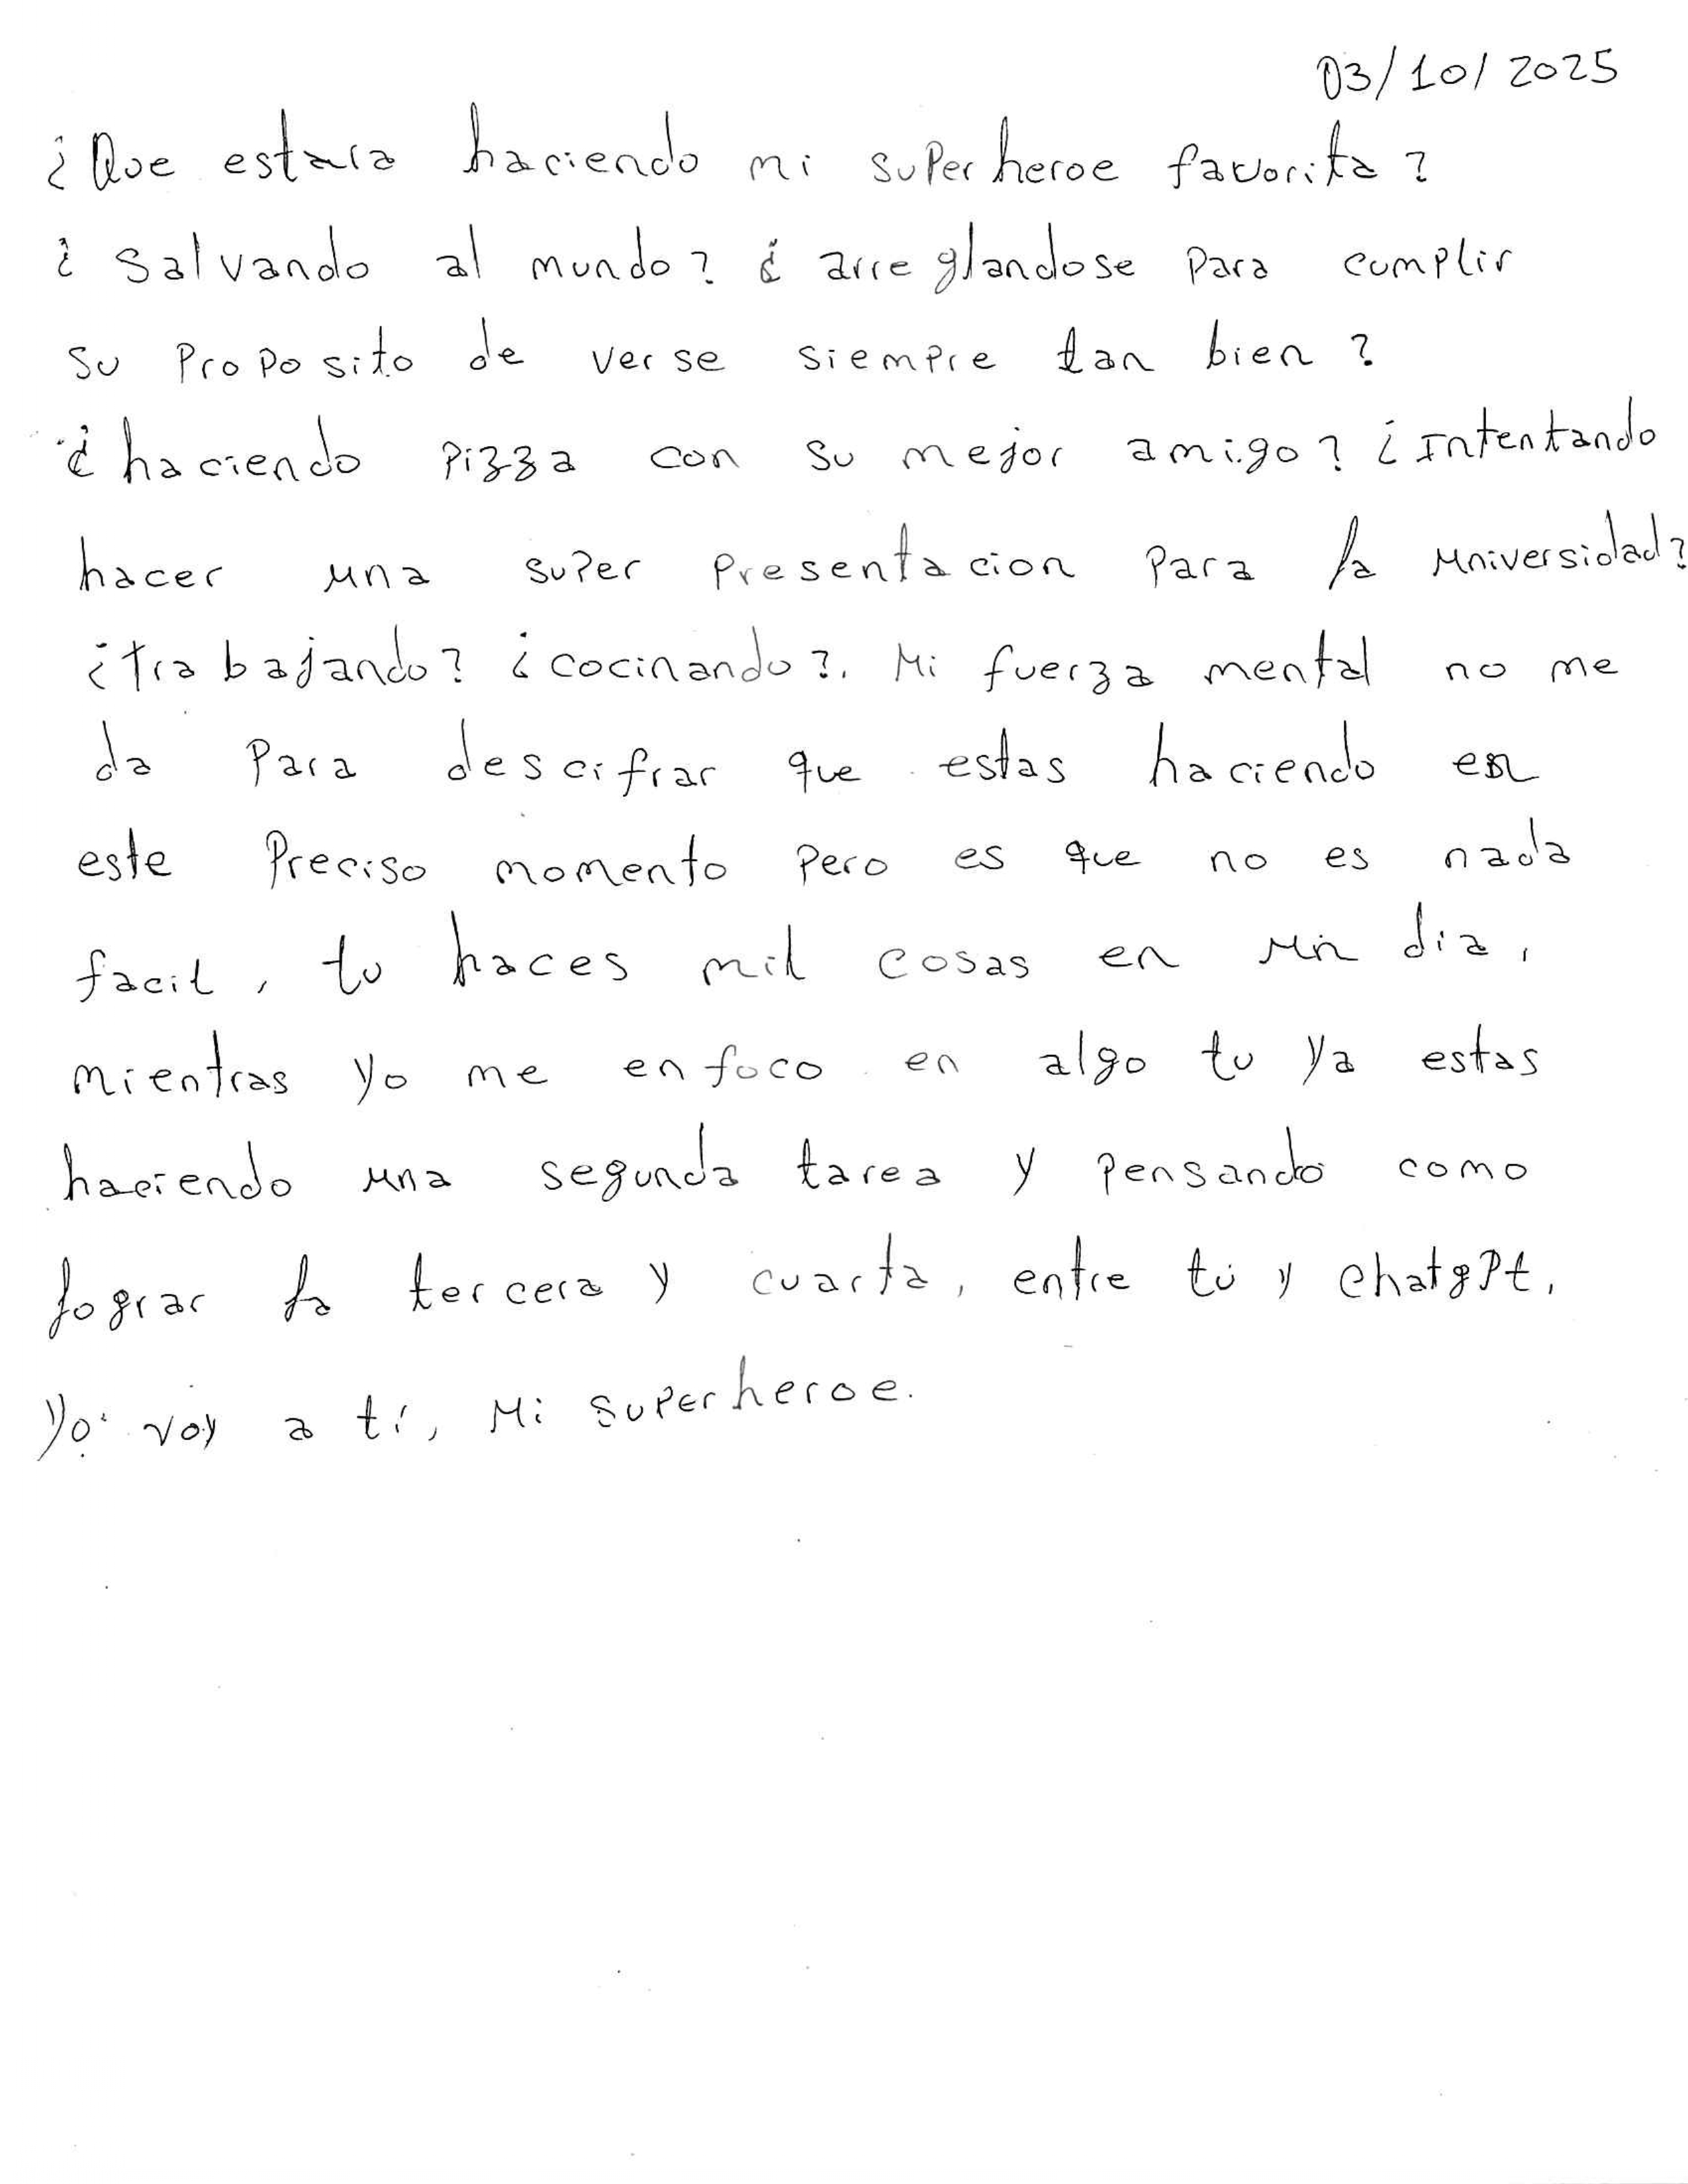 03/10/2025
¿Que estara haciendo mi superheroe favorita?
¿salvando al mundo? ¿arreglandose para cumplir
su proposito de verse siempre tan bien?
¿haciendo pizza con su mejor amigo? ¿Intentando
hacer una super presentacion para la universidad?
¿trabajando? ¿cocinando?. Mi fuerza mental no me
da para descifrar que estas haciendo en
este preciso momento pero es que no es nada
facil, tu haces mil cosas en un dia,
mientras yo me enfoco en algo tu ya estas
haciendo una segunda tarea y pensando como
lograr la tercera y cuarta, entre tú y chatgpt,
Yo voy a tí, Mi superheroe.